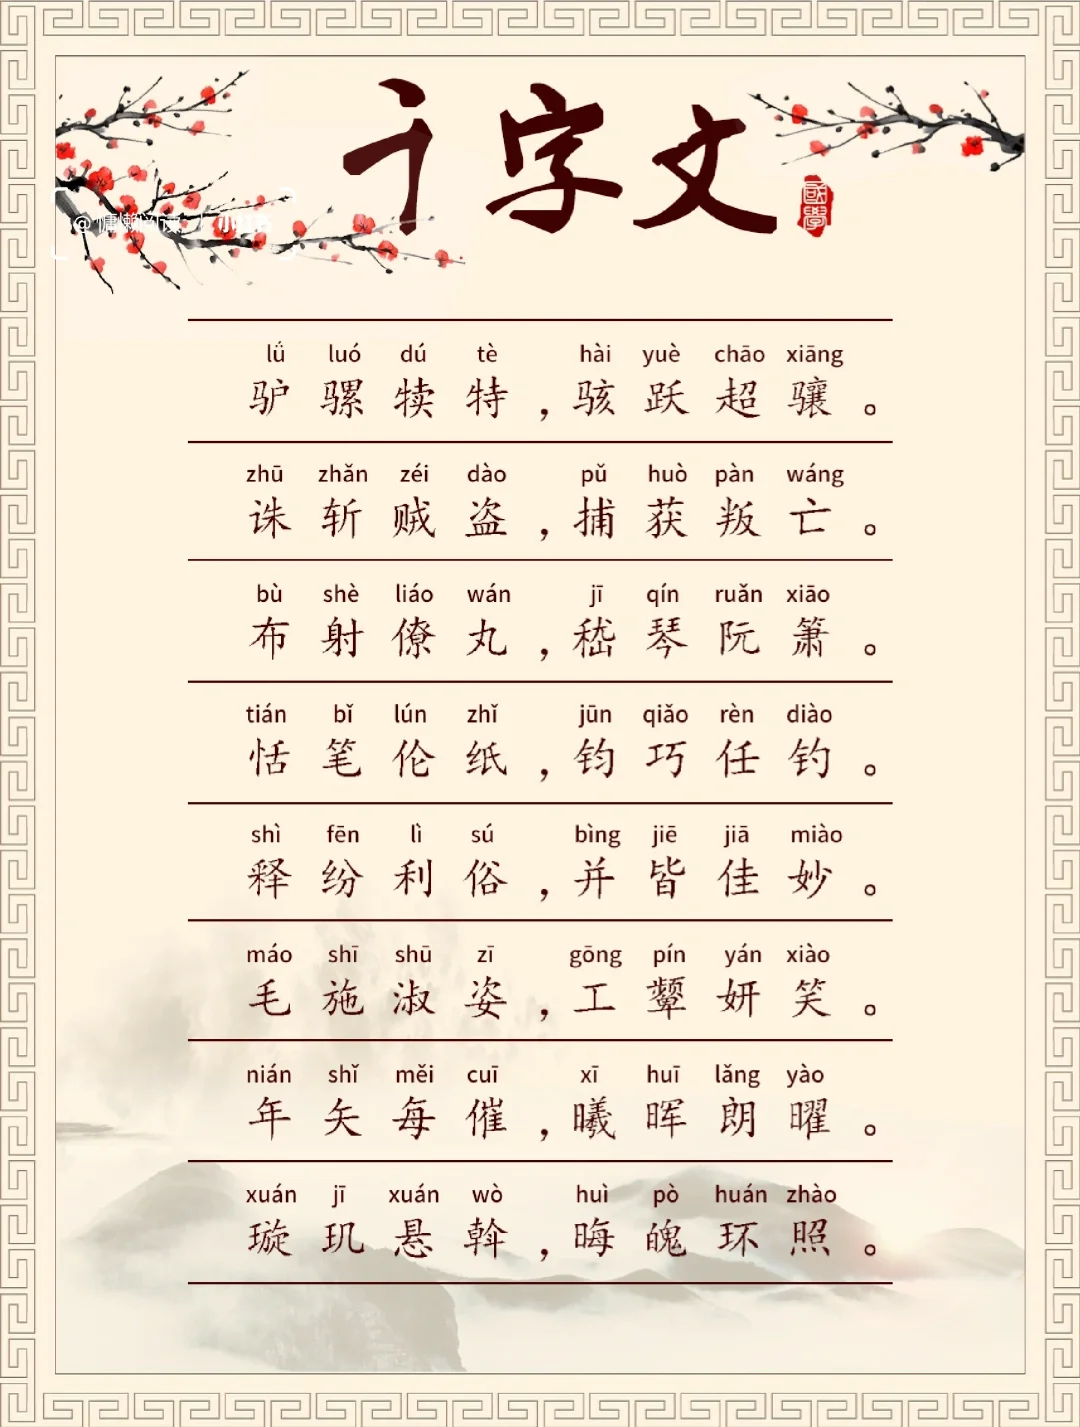 千字文
國學
lǘ luó dú tè hài yuè chāo xiāng
驴骡犊特，骇跃超骧。
zhū zhǎn zéi dào pǔ huò pàn wáng
诛斩贼盗，捕获叛亡。
bù shè liáo wán jī qín ruǎn xiāo
布射僚丸，嵇琴阮箫。
tián bǐ lún zhǐ jūn qiǎo rèn diào
恬笔伦纸，钧巧任钓。
shì fēn lì sú bìng jiē jiā miào
释纷利俗，并皆佳妙。
máo shī shū zī gōng pín yán xiào
毛施淑姿，工颦妍笑。
nián shǐ měi cuī xī huī lǎng yào
年矢每催，曦晖朗曜。
xuán jī xuán wò huì pò huán zhào
璇玑悬斡，晦魄环照。